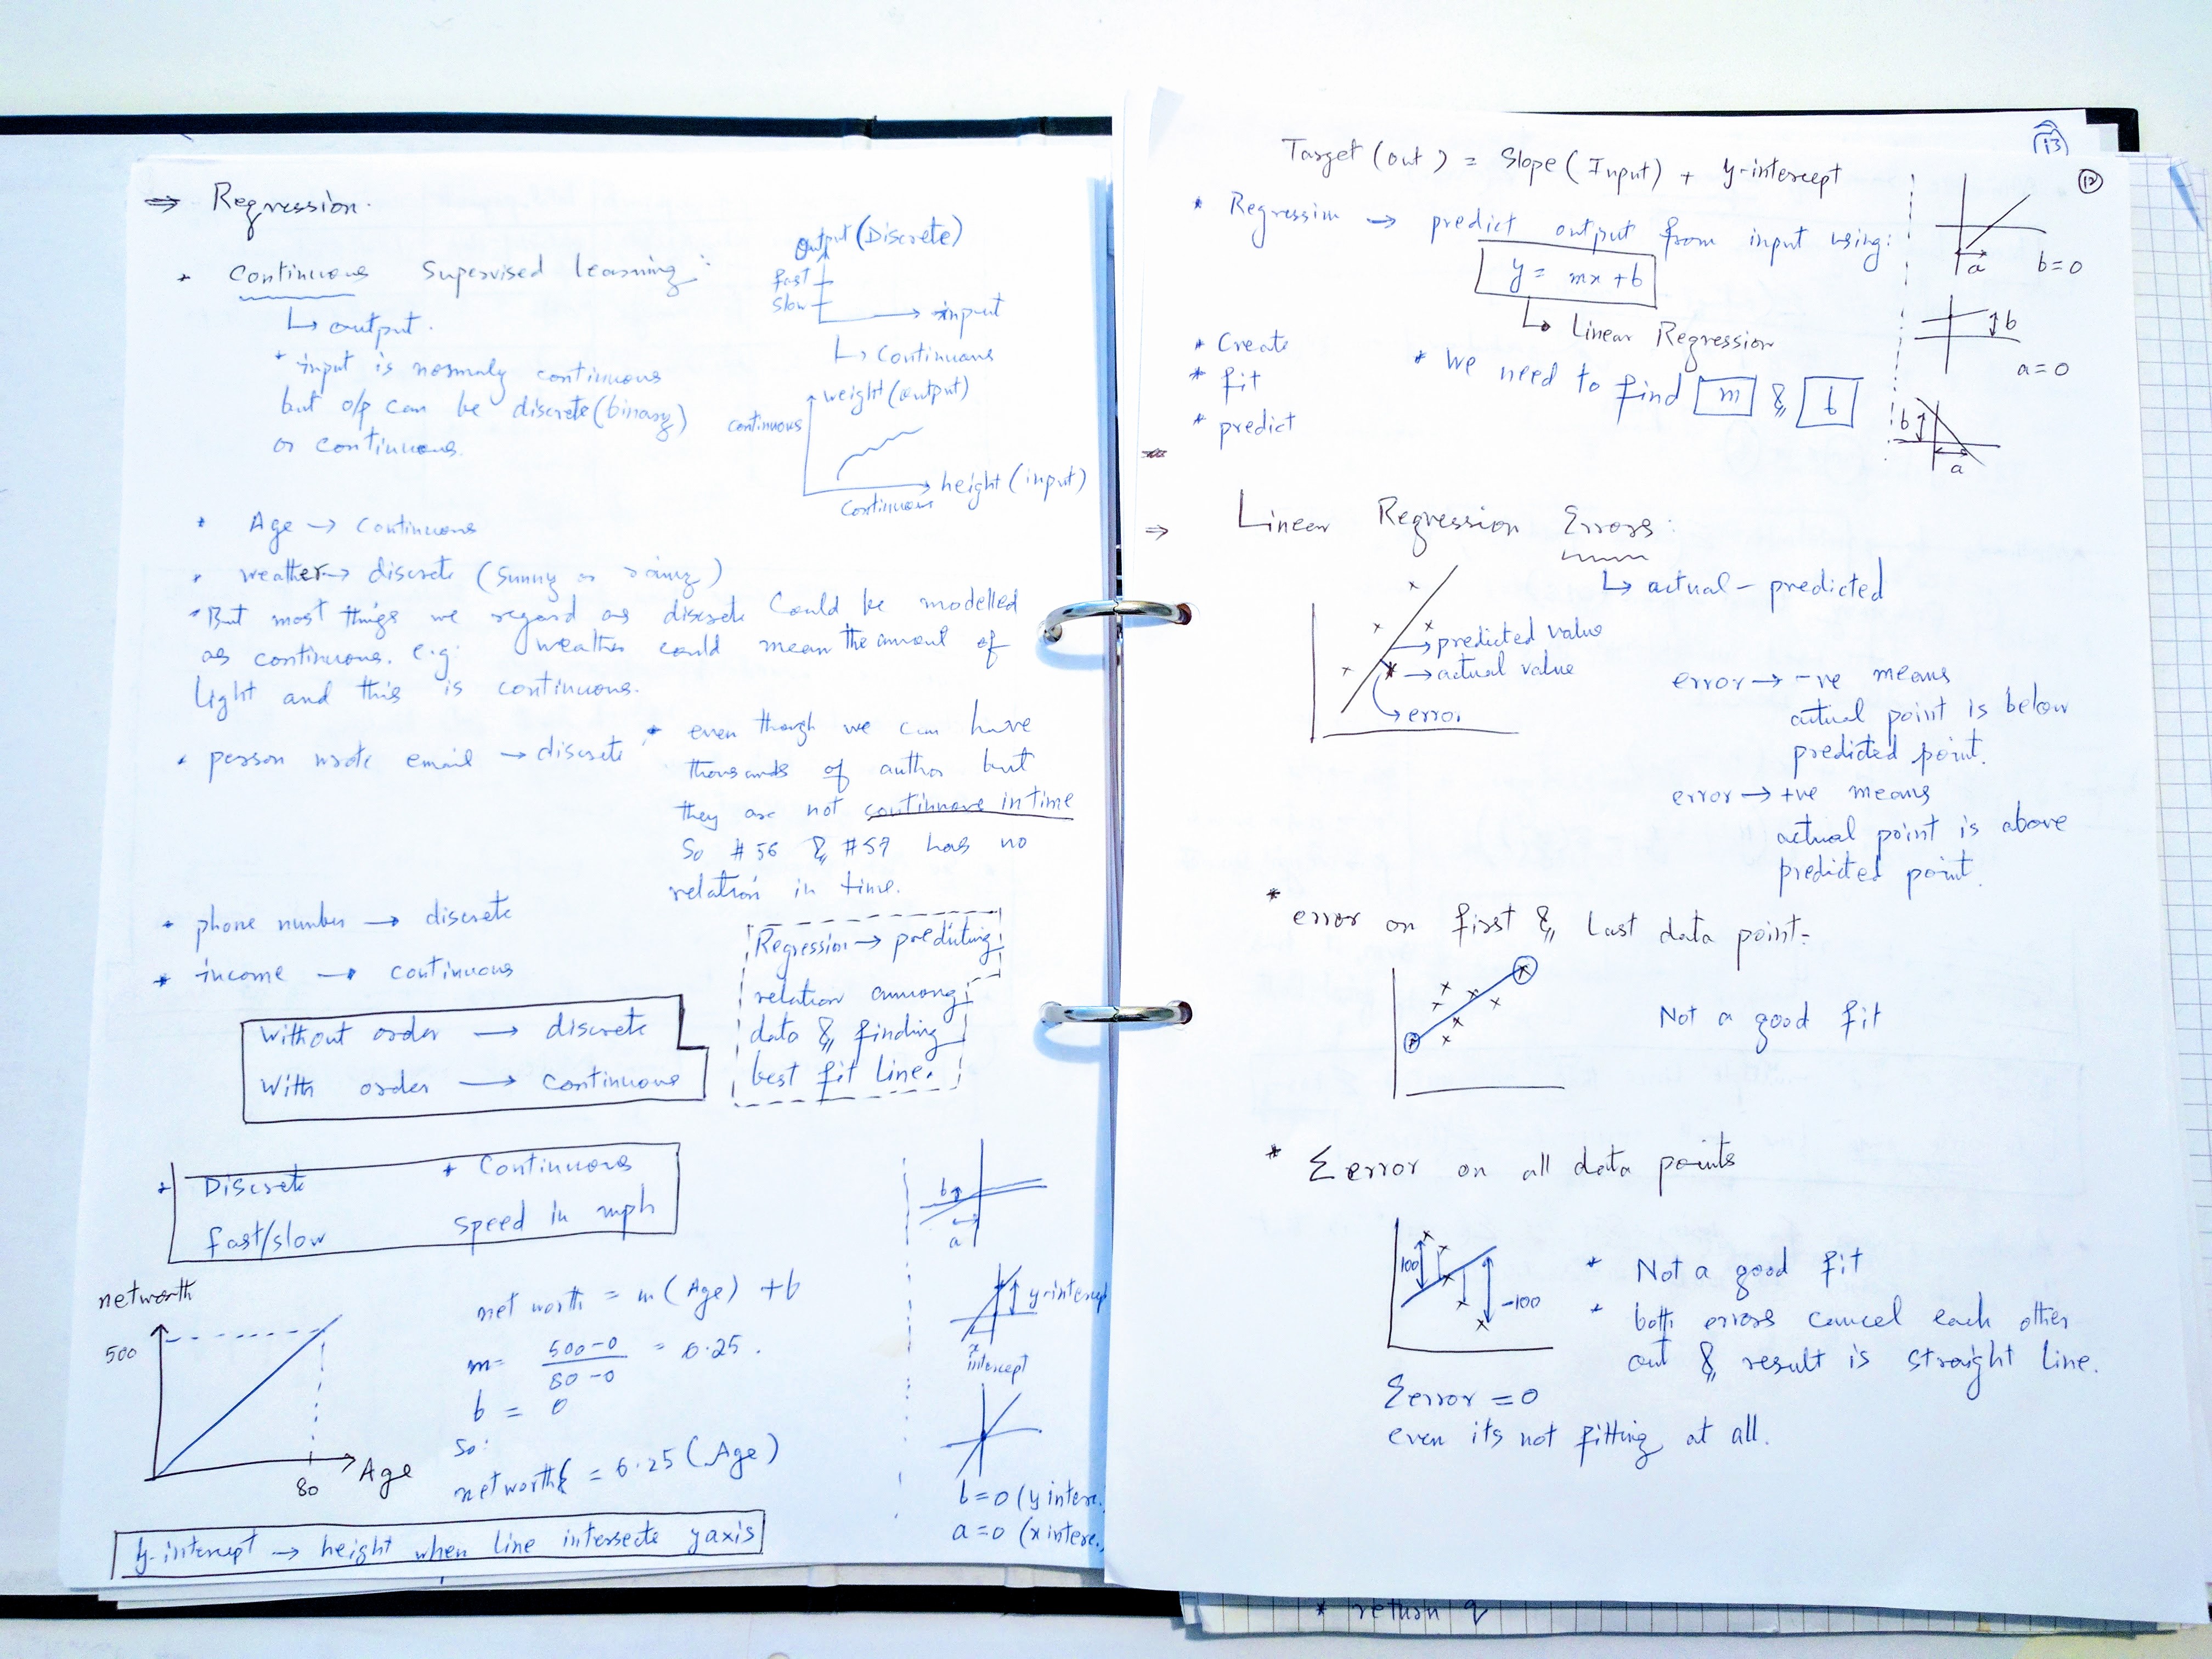 ⇒ Regression.
* Continuous Supervised Learning:
↳ output.
* input is normaly continuous
but o/p can be discrete (binary)
or continuous.
output (Discrete)
fast
slow
input
↳ Continuous
weight (output)
continuous
height (input)
Continuous
* Age → Continuous
* weather → discrete (Sunny or rainy)
* But most things we regard as discrete could be modelled
as continuous. e.g. weather could mean the amount of
light and this is continuous.
* person wrote email → discrete
* even though we can have
thousands of author but
they are not continuous in time
So #56 & #57 has no
relation in time.
* phone number → discrete
* income → continuous
Without order → discrete
With order → continuous
Regression → predicting
relation among
data & finding
best fit line.
* Discrete * Continuous
fast/slow speed in mph
networth
500
80
Age
net worth = m (Age) + b
m = 500-0 / 80-0 = 6.25.
b = 0
So:
networth = 6.25 (Age)
y-intercept → height when line intersects y axis
b
a
y-intercept
x
intercept
b=0 (y interc.
a=0 (x interc.
13
12
Target (out) = Slope (Input) + y-intercept
* Regression → predict output from input using:
y = mx + b
↳ Linear Regression
* Create
* fit
* predict
* We need to find m & b
a b=0
b
a=0
b
a
⇒ Linear Regression Errors:
↳ actual - predicted
→ predicted value
→ actual value
→ error
error → -ve means
actual point is below
predicted point.
error → +ve means
actual point is above
predicted point.
* error on first & last data point:
Not a good fit
* Σ error on all data points
100
-100
* Not a good fit
* both errors cancel each other
out & result is straight line.
Σ error = 0
even its not fitting at all.
* return